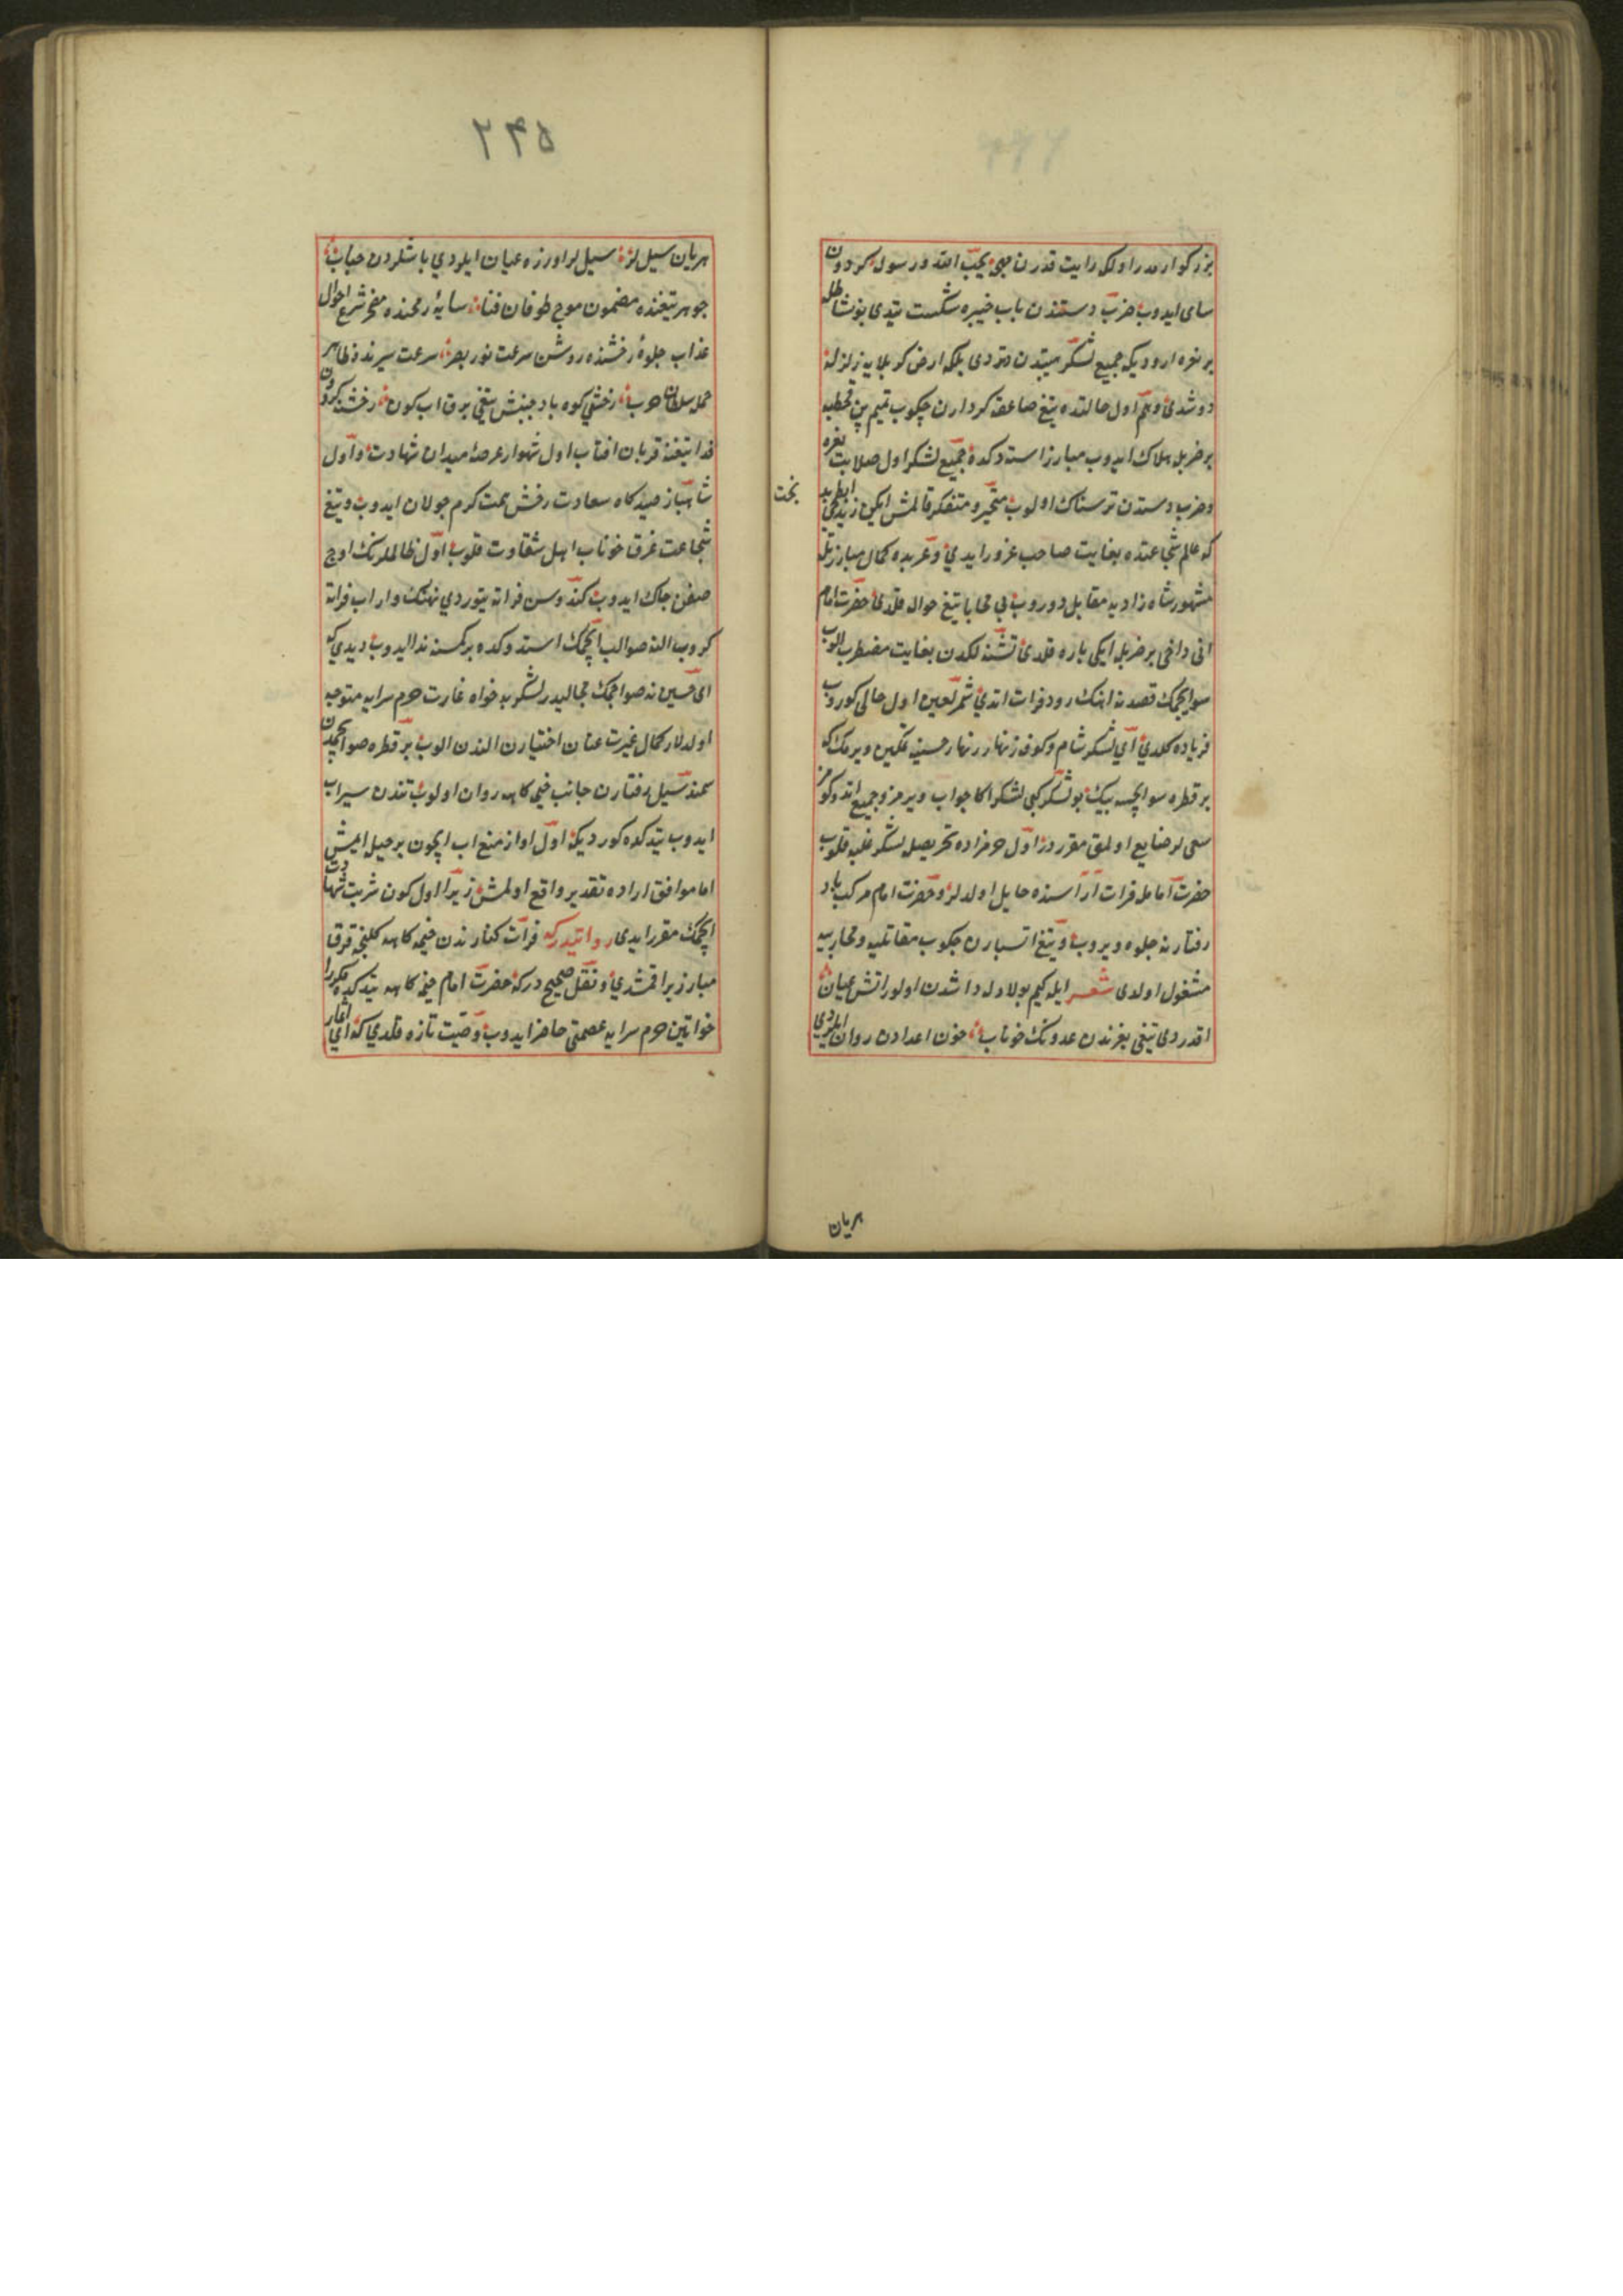 بزركوارمدر اولكه رايت قدرن محبي يحب الله ورسوله كردون
ساى ايدوب ضرب دستندن باب خيبره شكست يتدى بونشاطله
بر نعره اوردى كه جميع لشكر هيبتدن دتردى بلكه ارض كربلايه زلزله
دوشدى وهم اول حالتده تيغ صاعقه كردارن چكوب تميم بن قحطبه
بر ضربله هلاك ايدوب مبارز استدكده جميع لشكر اول صلابت نعره
وضرب دستدن ترسناك اولوب متحير ومتفكر قالمش ايكن يزيد ابطحى
كه عالم شجاعتده بغايت صاحب غرور ايدى وعربده كمال مبارزتله
مشهور شاه زاديه مقابل دوروب بى محابا تيغ حواله قلدى حضرت امام
انى داخى بر ضربله ايكى پاره قلدى تشنه لكدن بغايت مضطرب اولوب
سو ايچمك قصدنه اهنك رود فرات اتدى شمر لعين اول حالى كوروب
فرياده كلدى اى لشكر شام وكوفه زنهار زنهار حسينه تمكين ويرمك كه
بر قطره سو ايچسه بيك بو لشكر كبى لشكر اكا جواب ويرمز وجميع اتدوكومز
سعى لر ضايع اولمق مقرردر اول حرامزاده تحريصله لشكر غلبه قلوب
حضرت امامله فرات اراسنده حايل اولدلر وحضرت امام مركب باد
رفتارنه جلوه ويروب وتيغ اتشبارن چكوب مقاتليه ومحاربيه
مشغول اولدى شعر ايله كيم پولاد له داشدن اولور اتش عيان
اقدردى تيغى بغرندن عدونك خوناب خون اعدادن روان ايلردى
هريان
بخت
٢٤٥
هريان سيل لر سيل لر اوزره عيان ايلردي باشلردن حباب
جوهر تيغنده مضمون موج طوفان فنا سايۀ رمحنده مخفى شرع احوال
عذاب جلوۀ رخشنده روشن سرعت نور بصر سرعت سيرنده ظاهر
حمله سلطان حرب رخشى كوه باد جنبش تيغى برق اب كون رخشنه كردون
فدا تيغنه قربان افتاب اول شهوار عرصۀ ميدان شهادت واول
شاهباز صيدكاه سعادت رخش همت كرم جولان ايدوب وتيغ
شجاعت غرق خوناب اهل شقاوت قلوب اول ظالملرنك اوچ
صفن چاك ايدوب كندوسن فراته يتوردي نهنك وار اب فراته
كروب الينه صو الب ايچمك استدوكده بر كمسنه ندا ايدوب ديدي كه
اى حسين نه صو ايچمك محاليدر لشكر بدخواه غارت حرم سرايه متوجه
اولدلار كمال غيرت عنان اختيارن الندن الوب بر قطره صو ايچمدن
سمند سيل رفتارن جانب خيمه كاهه روان اولوب تندن سيراب
ايدوب يتدكده كوردى كه اول اواز منع اب ايچون بر حيل ايمش
اما موافق اراده تقدير واقع اولمش زيرا اول كون شربت شهادت
ايچمك مقرر ايدى روايتدركه فرات كنارندن خيمه كاهه كلنجه قرق
مبارز براقمشدي ونقل صحيح دركه حضرت امام خيمه كاهه يتدكده مكررا
خواتين حرم سرايه عصمتى حاضر ايدوب وصيت تازه قلدي كه اي